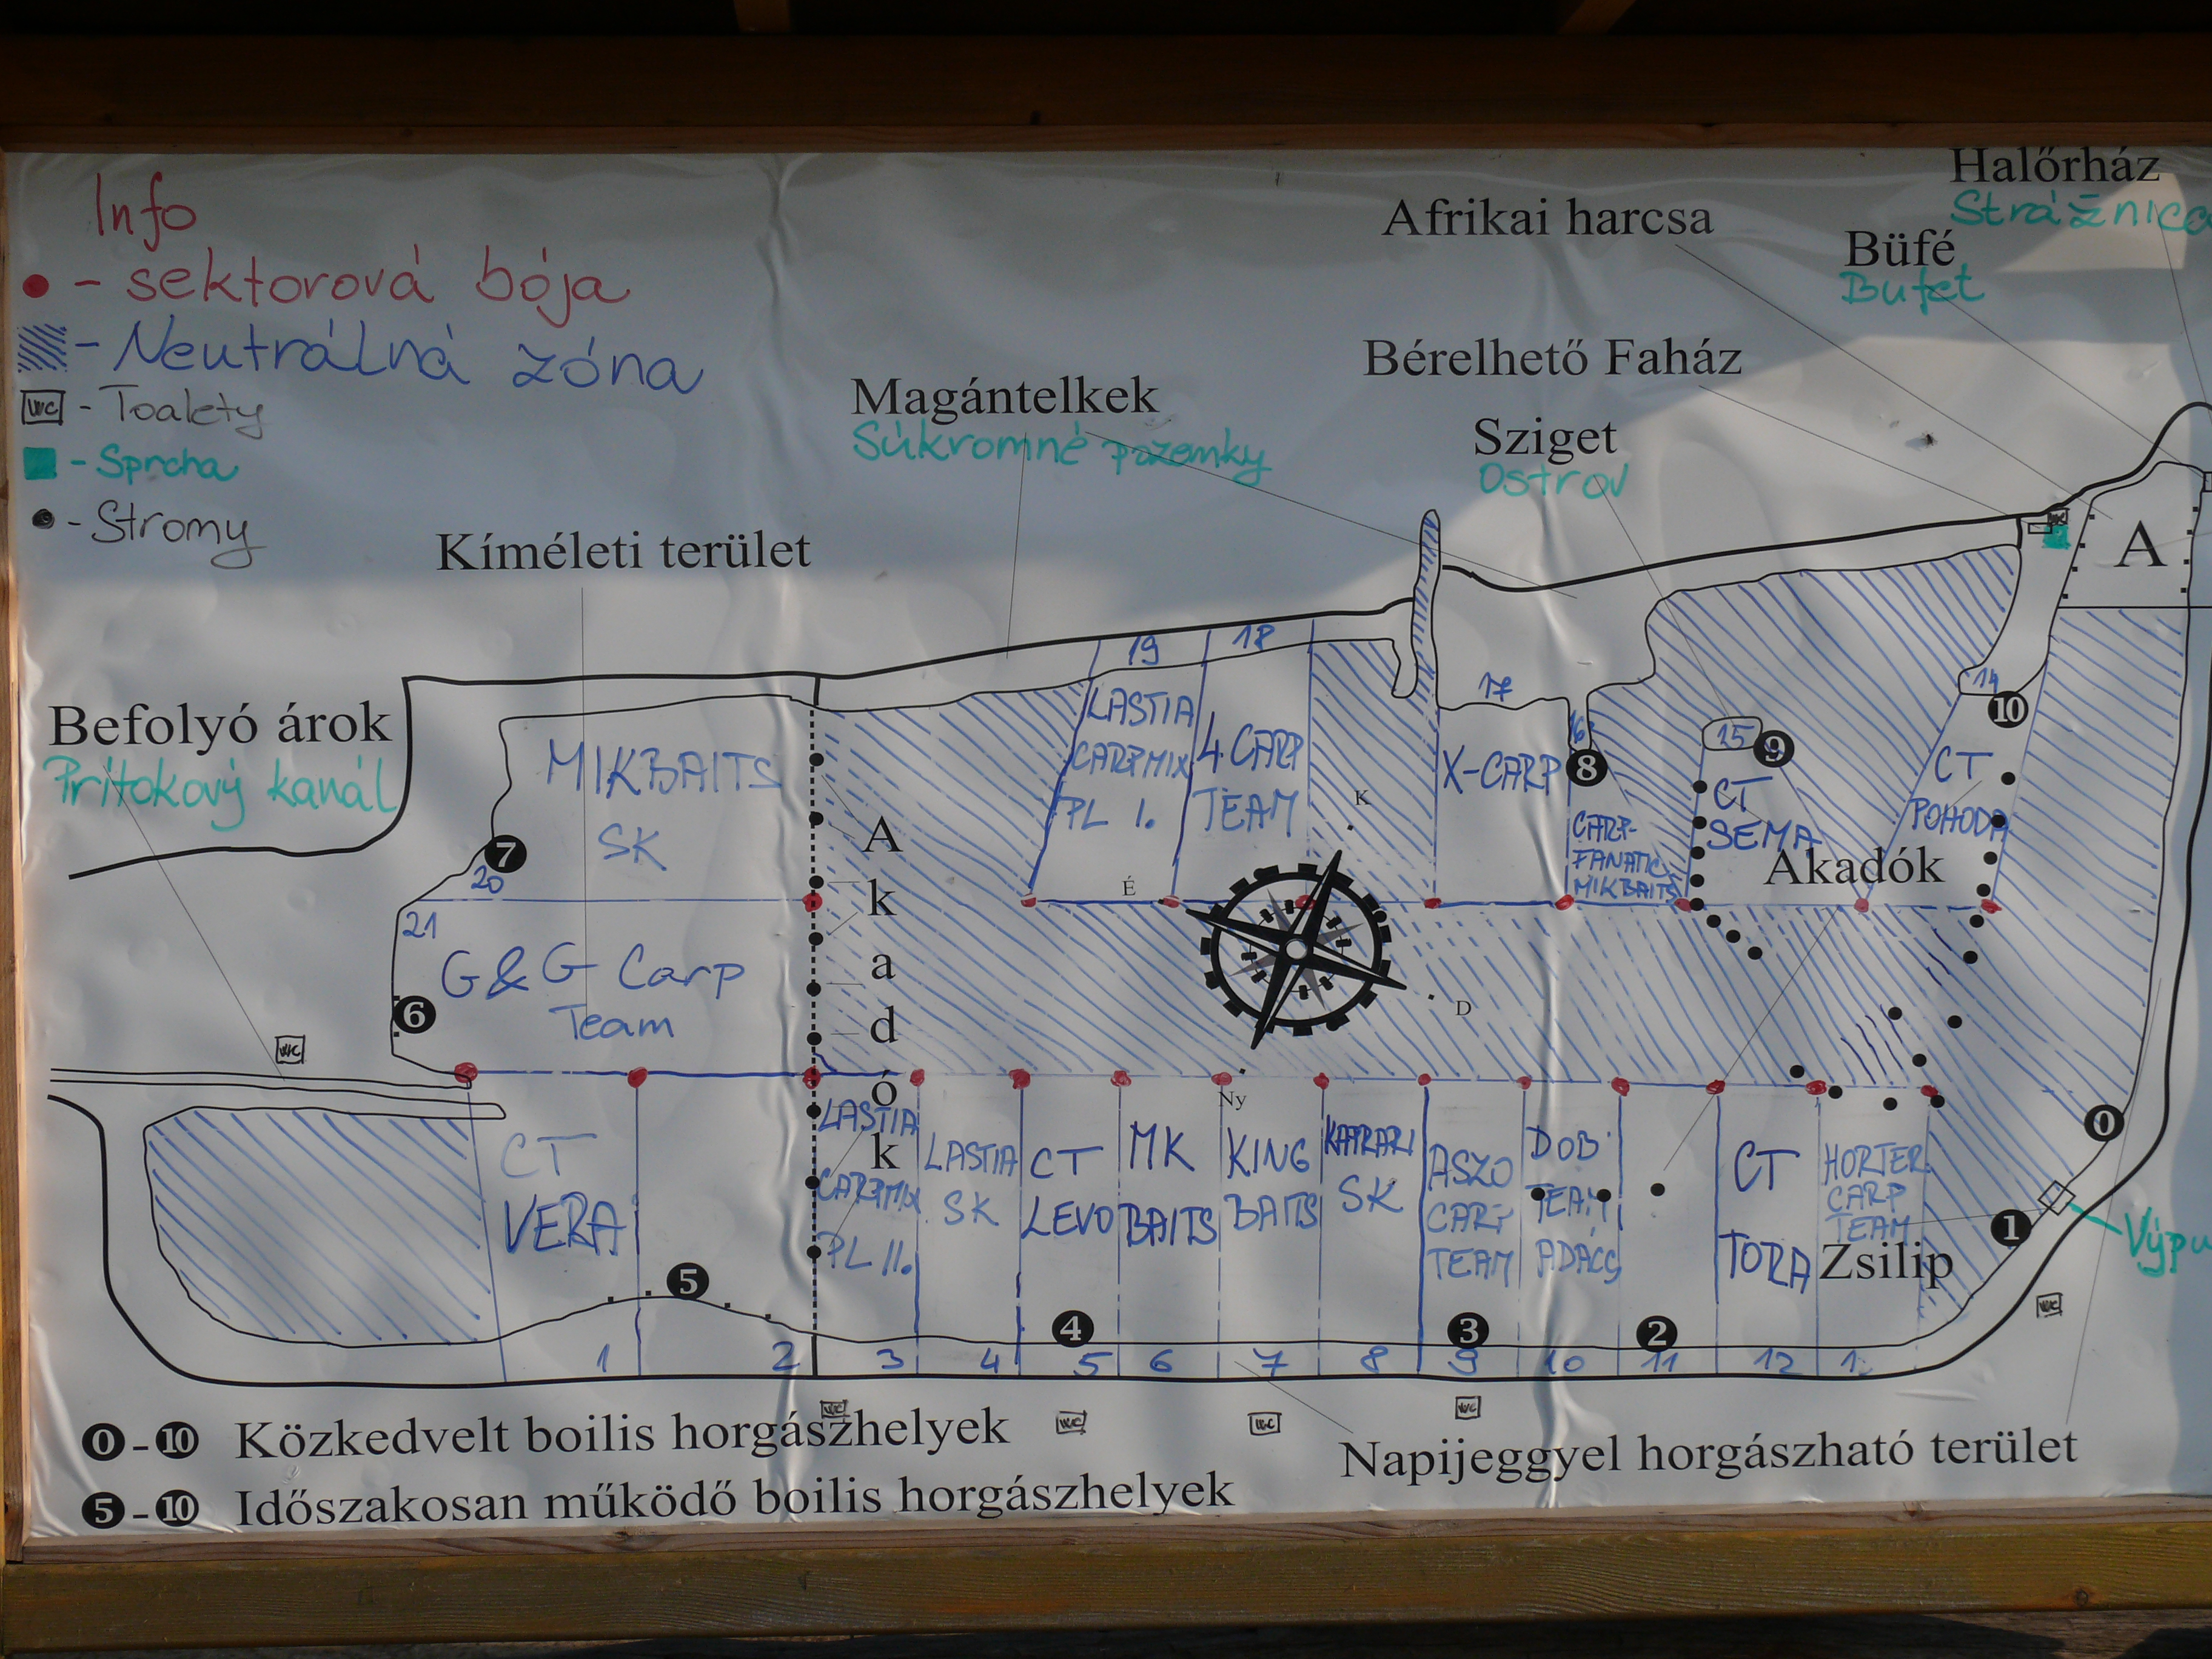 Info
- sektorová bója
- Neutrálná zóna
WC - Toalety
- Sprcha
- Stromy
Halőrház
Strážnica
Afrikai harcsa
Büfé
Bufet
Bérelhető Faház
Magántelkek
Súkromné pozemky
Sziget
Ostrov
Kíméleti terület
A
Befolyó árok
Prítokový kanál
19
18
17
16
15
14
10
9
8
MIKBAITS
SK
LASTIA
CARPMIX
PL I.
4 CARP
TEAM
X-CARP
CARP-
FANATIC
MIKBAITS
CT
SEMA
CT
POHODA
Akadók
7
20
21
G&G Carp
Team
6
WC
Akadók
K
É
D
Ny
CT
VERA
LASTIA
CARPMIX
PL II.
LASTIA
SK
CT
LEVO
MK
BAITS
KING
BAITS
SK
ASZO
CARP
TEAM
DOB
TEAM
ADÁCS
CT
TORA
HORTER
CARP
TEAM
Zsilip
0
1
Výpu
WC
5
4
3
2
1 2 3 4 5 6 7 8 9 10 11 12
WC WC WC WC
0-10 Közkedvelt boilis horgászhelyek
Napijeggyel horgászható terület
5-10 Időszakosan működő boilis horgászhelyek